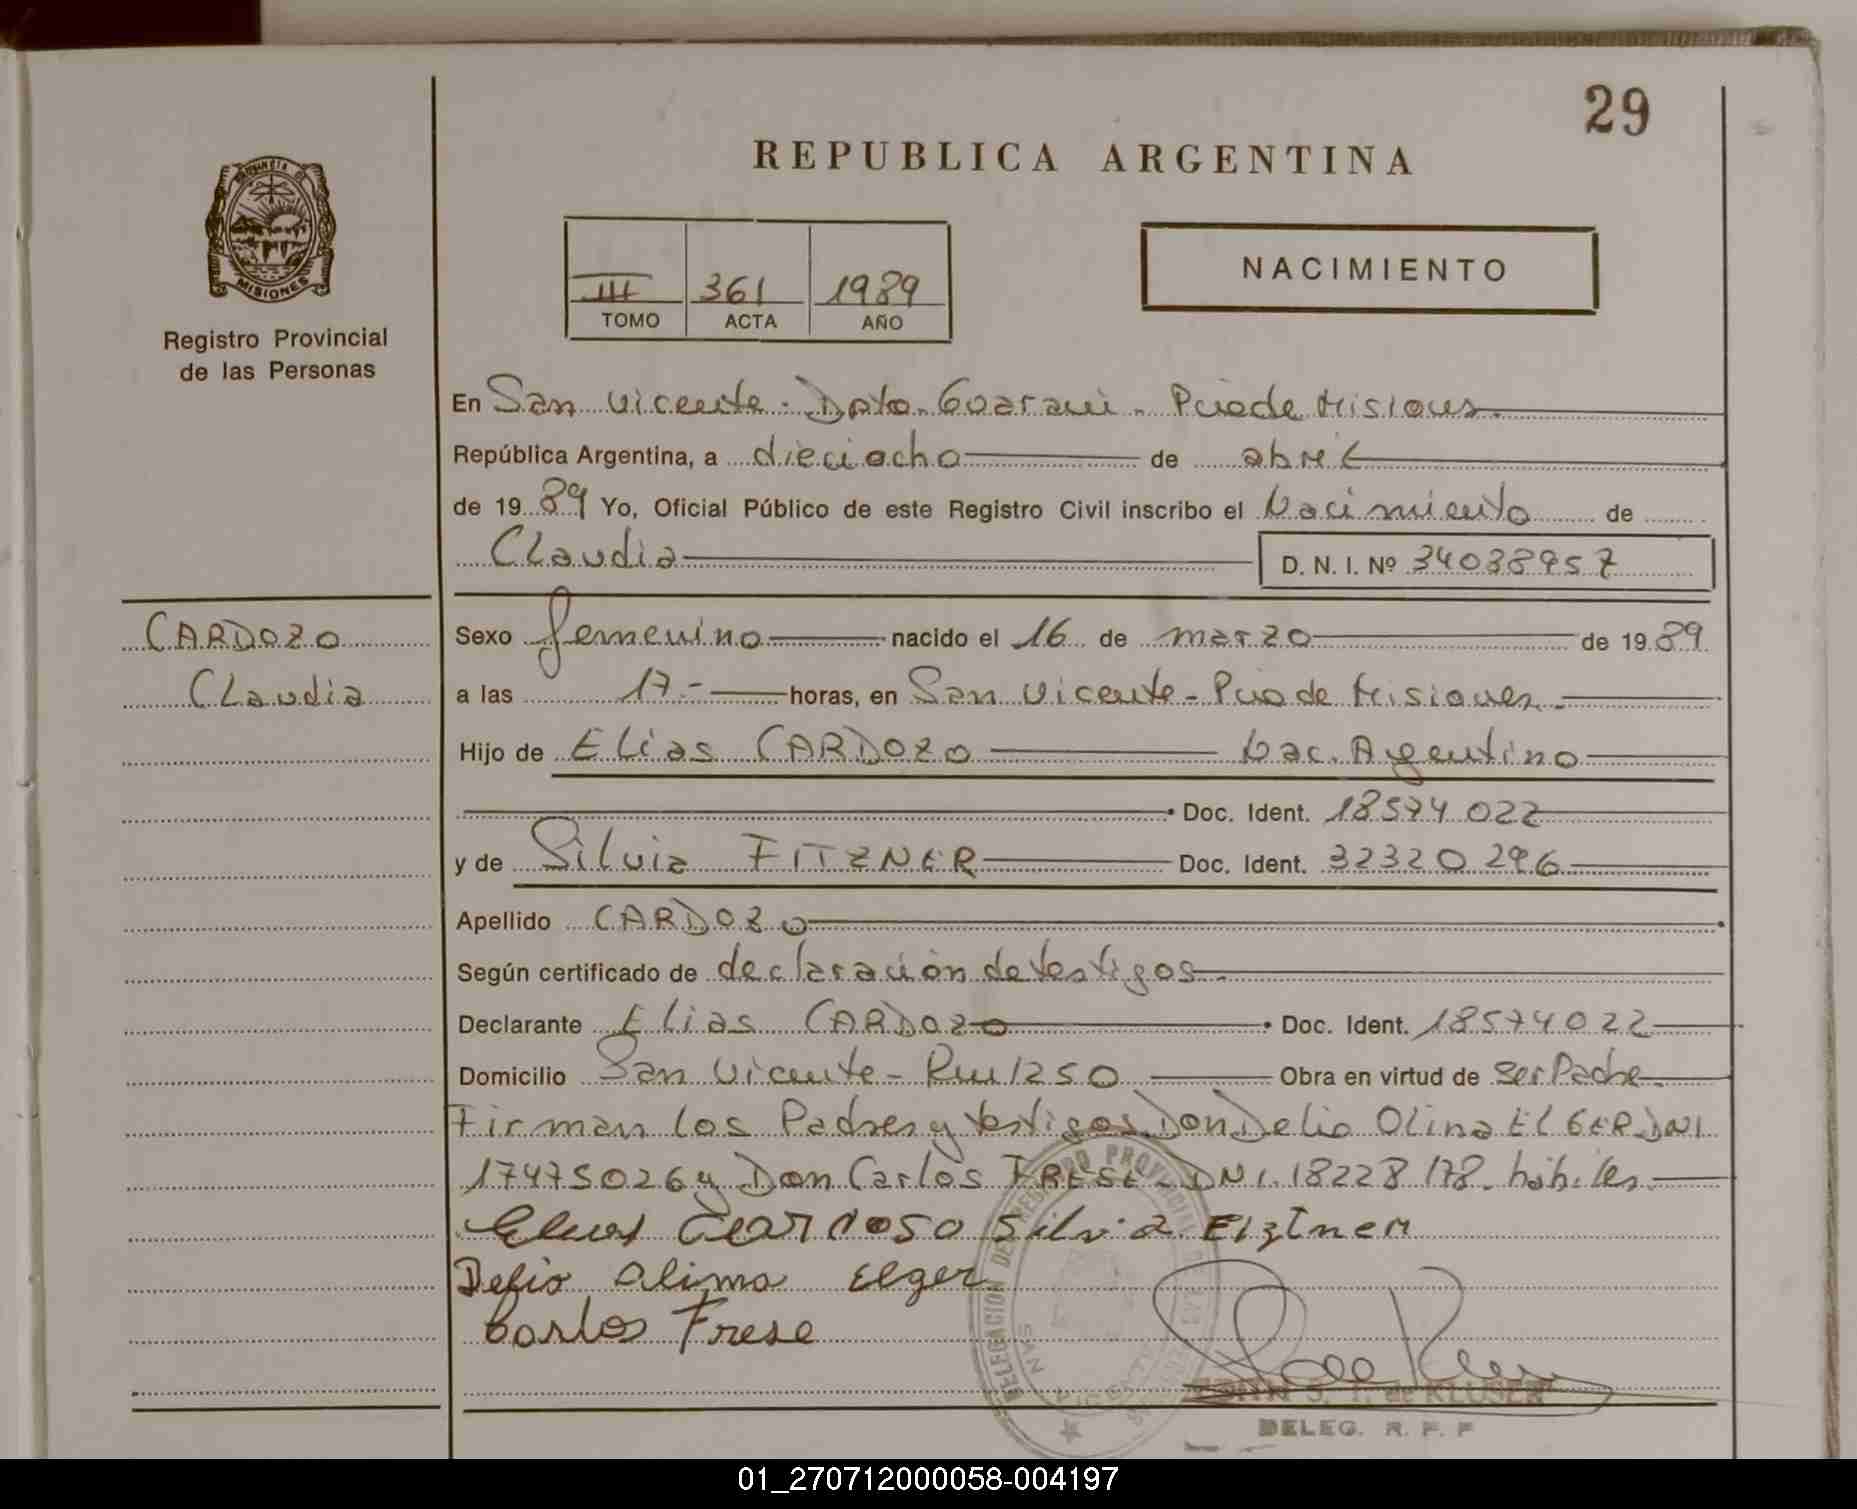 29
REPUBLICA ARGENTINA
PROVINCIA DE
MISIONES
Registro Provincial
de las Personas
III 361 1989
TOMO ACTA AÑO
NACIMIENTO
En San Vicente - Dpto. Guaraní - Pcia de Misiones.
República Argentina, a dieciocho de abril
de 19 89 Yo, Oficial Público de este Registro Civil inscribo el Nacimiento de
Claudia D. N. I. Nº 34038957
CARDOZO
Claudia
Sexo femenino nacido el 16 de marzo de 19 89
a las 17.- horas, en San Vicente - Pcia de Misiones.
Hijo de Elias CARDOZO Nac. Argentino
Doc. Ident. 18574022
y de Silvia FITZNER Doc. Ident. 32320296
Apellido CARDOZO
Según certificado de declaración de testigos.
Declarante Elias CARDOZO Doc. Ident. 18574022
Domicilio San Vicente - Km 1250 Obra en virtud de ser Padre.
Firman los Padres y testigos Don Delio Olina ELGER DNI
17475026 y Don Carlos FRESE - DNI. 18228178. hábiles.
Cardoso Silvia Eiztner
Delio Olimo Elger
Carlos Frese
DELEGACION DEL REGISTRO PROVINCIAL DE LAS
SAN VICENTE
de KLUSER
DELEG. R. P. P
01_270712000058-004197